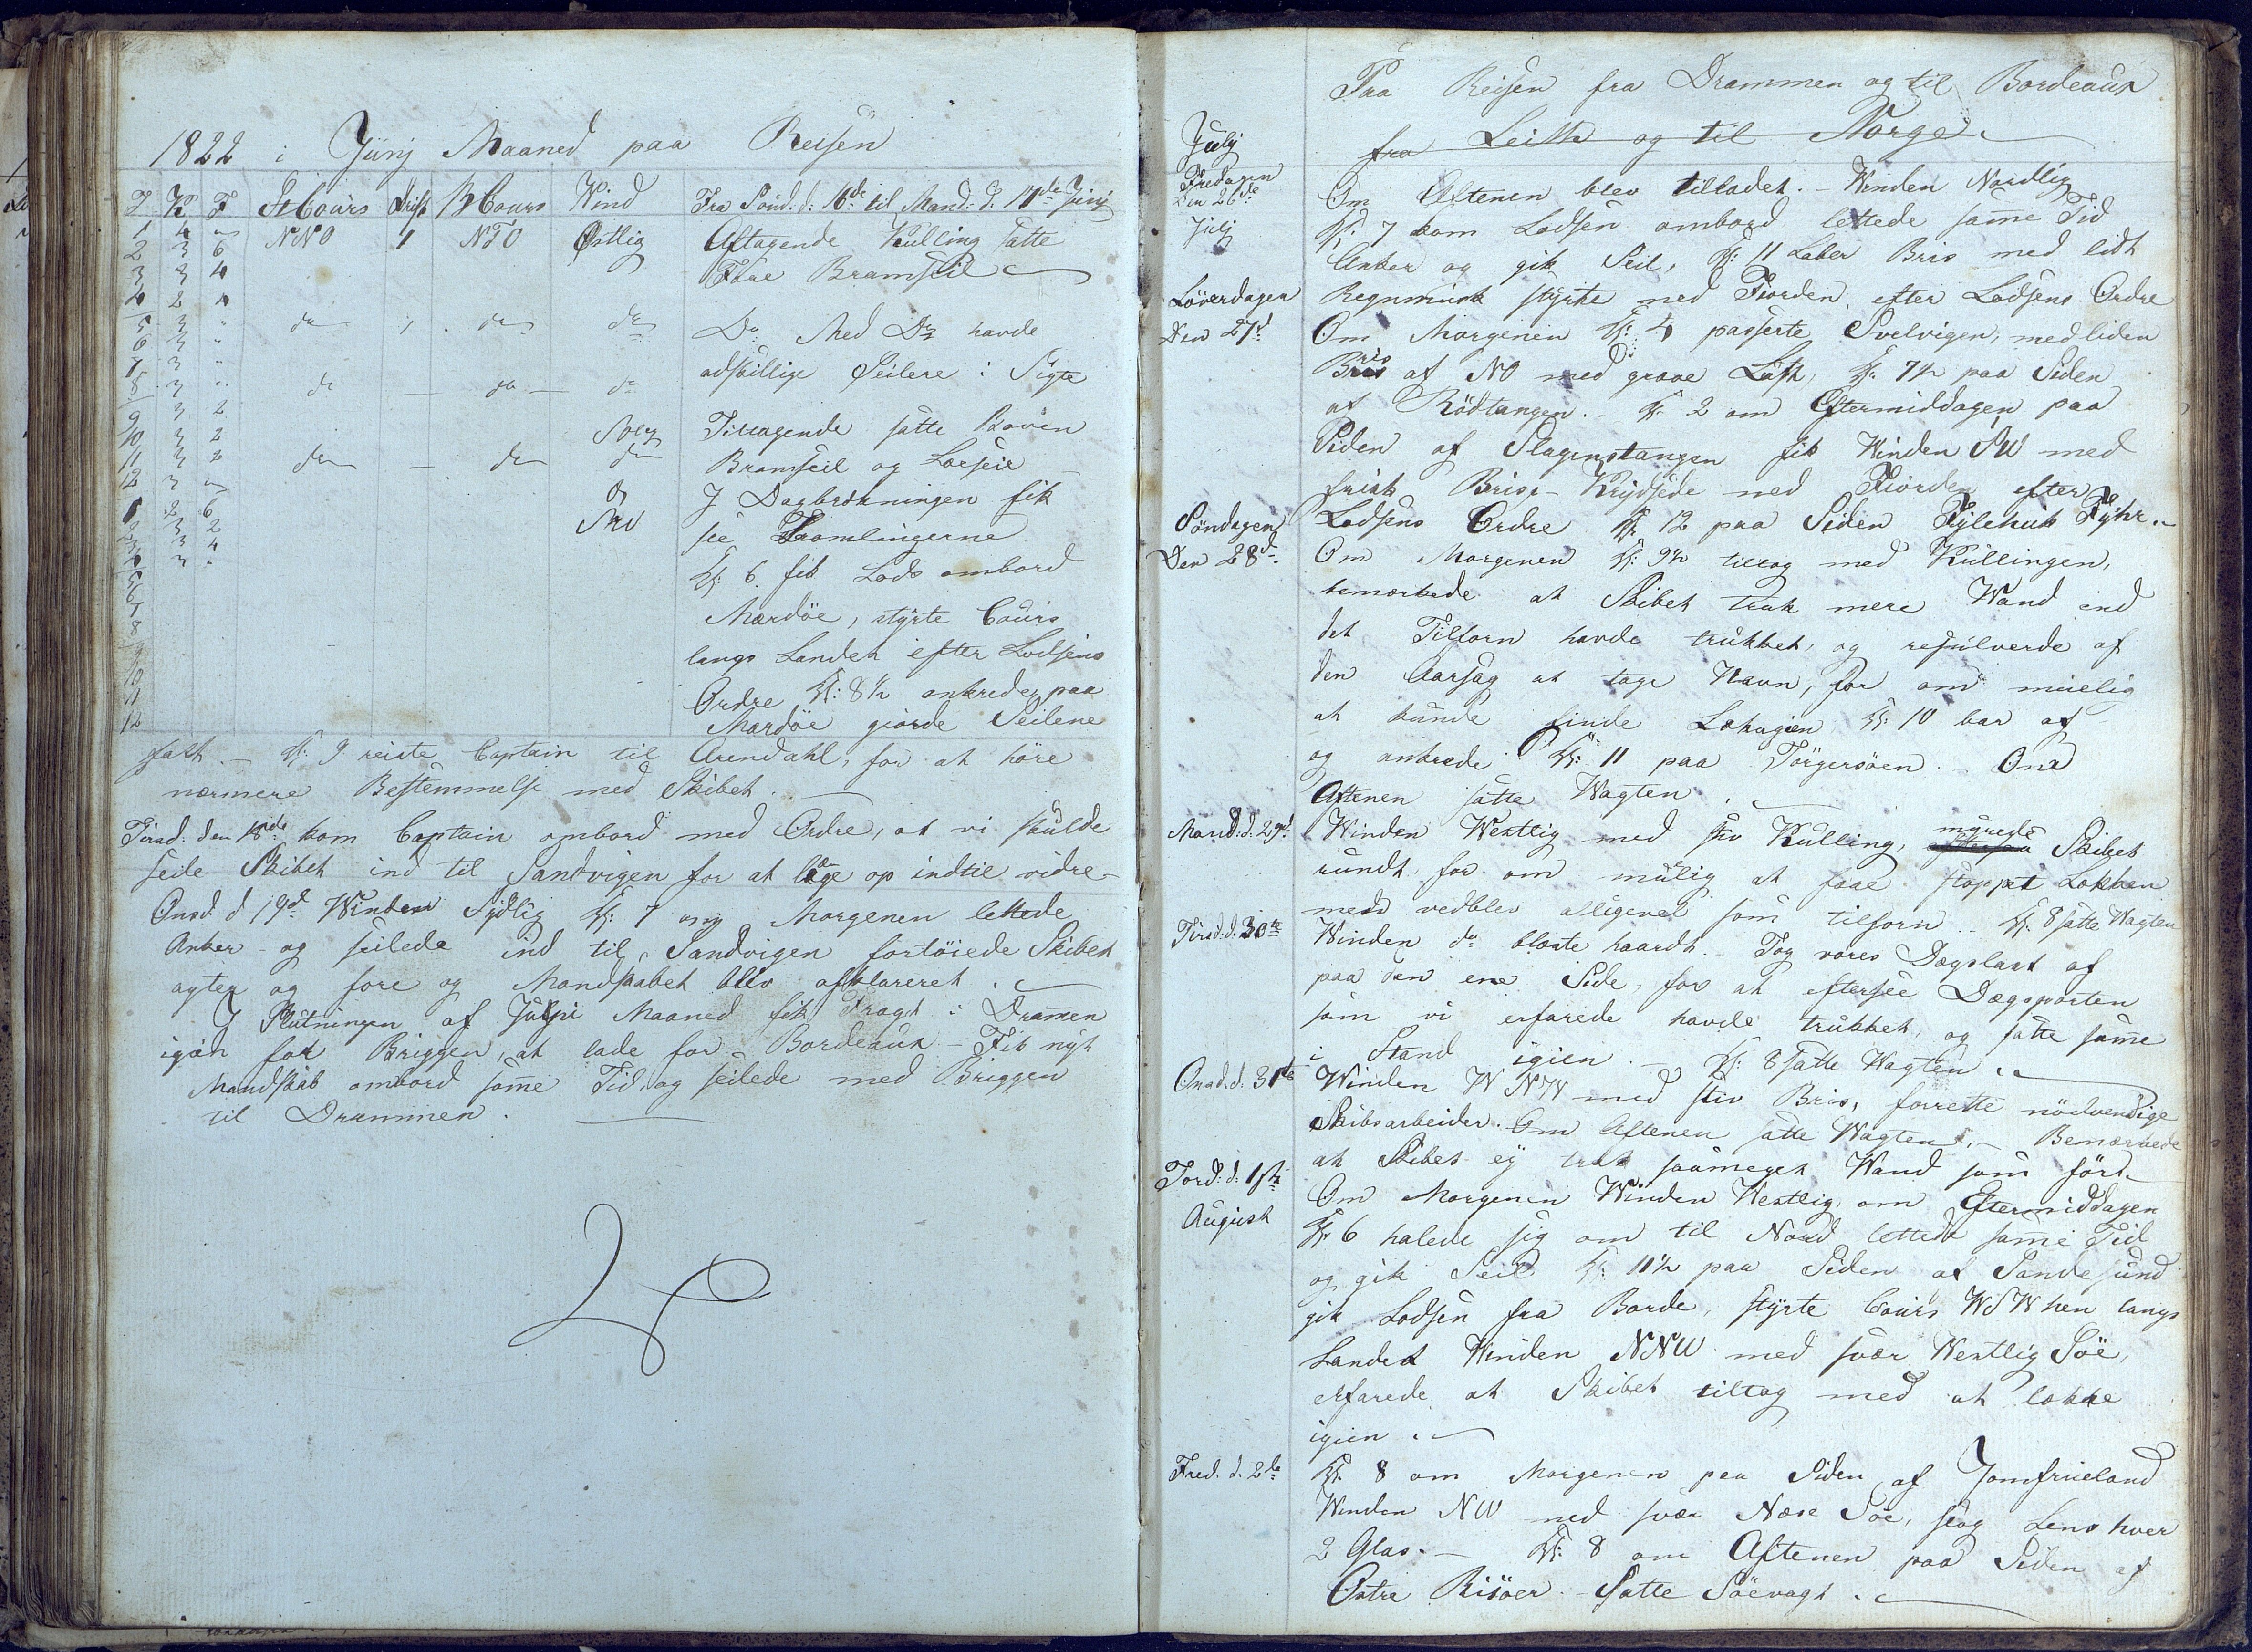 1822 i Junj Maaned paa Reisen
T K F St Cours Drift B Cours Wind Fra Sönd: d: 16de til Mand: d. 17de Junj
1 4 " NNO 1 NTO Østlig Aftagende Kulling satte
2 3 6
3 3 4 Flue Bramseil
4 2 4
5 3 " do 1 do do Do Med Do havde
6 3 "
7 3 " adskillige Seilere i Sigte
8 3 " do — do — do
9 3 2
10 3 2 Solig Tiltagende satte Boven
11 3 2 do — do do Bramseil og Læseil
12 3 " og J Dagbrækningen fik
1 2 6
2 3 2 SW see Tromlingerne
3 3 4
4 3 " Kl: 6. fik Lods ombord
5
6
7 Mærdöe, styrte Cours
8
9 langs Landet efter Lodsens
10
11 Ordre Kl: 8½ ankrede paa
12 Mærdöe giorde Seilene
fast. — Kl: 9 reiste Captain til Arendahl, for at höre
nærmere Bestemmelse med Skibet. —
Tirsd: den 18de kom Captain ombord med Ordre, at vi skulde
seile Skibet ind til Sandvigen for at læge op indtil vidre-
Onsd. d 19d Winden Sydlig Kl: 7 om Morgenen lettede
Anker og seilede ind til Sandvigen fortöiede Skibet
agter og fore og Mandskabet blev afklareret.
J Slutningen af Julji Maaned fik Fragt i Dramen
igien for Briggen, at lade for Bordeaux – Fik nyt
Mandskab ombord samme Tid, og seilede med Briggen
til Drammen. —
Paa Reisen fra Drammen og til Bordeaux
Julj fra Leith og til Norge.
Fredagen
Den 26de Om Aftenen blev tilladet. – Winden Nordlig
Julj Kl: 7 kom Lodsen ombord lettede samme Tid
Anker og gik Seil, Kl: 11 Laber Bris med lidt
Löverdagen Regnmusk styrte ned Fiorden, efter Lodsens Ordre
Den 27d Om Morgenen Kl: 4 passerte Svelvigen, med liden
Bris af NO med graae Luft, Kl: 7½ paa Siden
af Rödtangen. – Kl: 2 om Eftermiddagen paa
Siden af Slagenstangen fik Winden SW med
frisk Brise – Krydsede ned Fiorden efter
Söndagen Lodsens Ordre Kl: 12 paa Siden Fylehuk Fyhr.
Den 28d Om Morgenen Kl: 9½ tiltog med Kullingen,
bemærkede at Skibet trak mere Wand end
det Tilforn havde trukket, og resulverde af
den Aarsag at tage Havn, for om muelig
at kunde finde Lækagien Kl: 10 bar af
og ankrede Kl: 11 paa Törgersöen. – Om
Aftenen satte Wagten.
Mand: d: 29d Winden Westlig med stiv Kulling, Skibet
rundt, for om mulig at faae stoppet Lækken
men vedblev alligevel som tilforn. – Kl: 8 satte Wagten
Tirsd: d. 30te Winden do blæste haardt. – Tog vores Dægslast af
paa den ene Side, for at eftersee Dægsporten
som vi erfarede havde trukket, og satte samme
i Stand igien. – Kl: 8 satte Wagten.
Onsd. d: 31te Winden WNW med stiv Bris, forrette nödvendige
Skibsarbeider. Om Aftenen satte Wagten. – Bemærkede
at Skibet ey trak saameget Wand som förd.
Tord: d: 1ste Om Morgenen Winden Westlig, om Eftermiddagen
August Kl: 6 halede sig om til Nord lettede samme Tid
og gik Seil Kl: 11½ paa Siden af Sandesund
gik Lodsen fra Borde, styrte Cours WSW hen langs
Landet Winden NNW med svær Westlig Söe,
erfarede at Skibet tiltog med at lække
igien.
Fred. d. 2de Kl: 8 om Morgenen paa Siden af Jomfrueland
Winden NW med svær Næse Söe, slog Lens hver
2 Glas. — Kl: 8 om Aftenen paa Siden af
Östre Risöer. – Satte Söevagt.